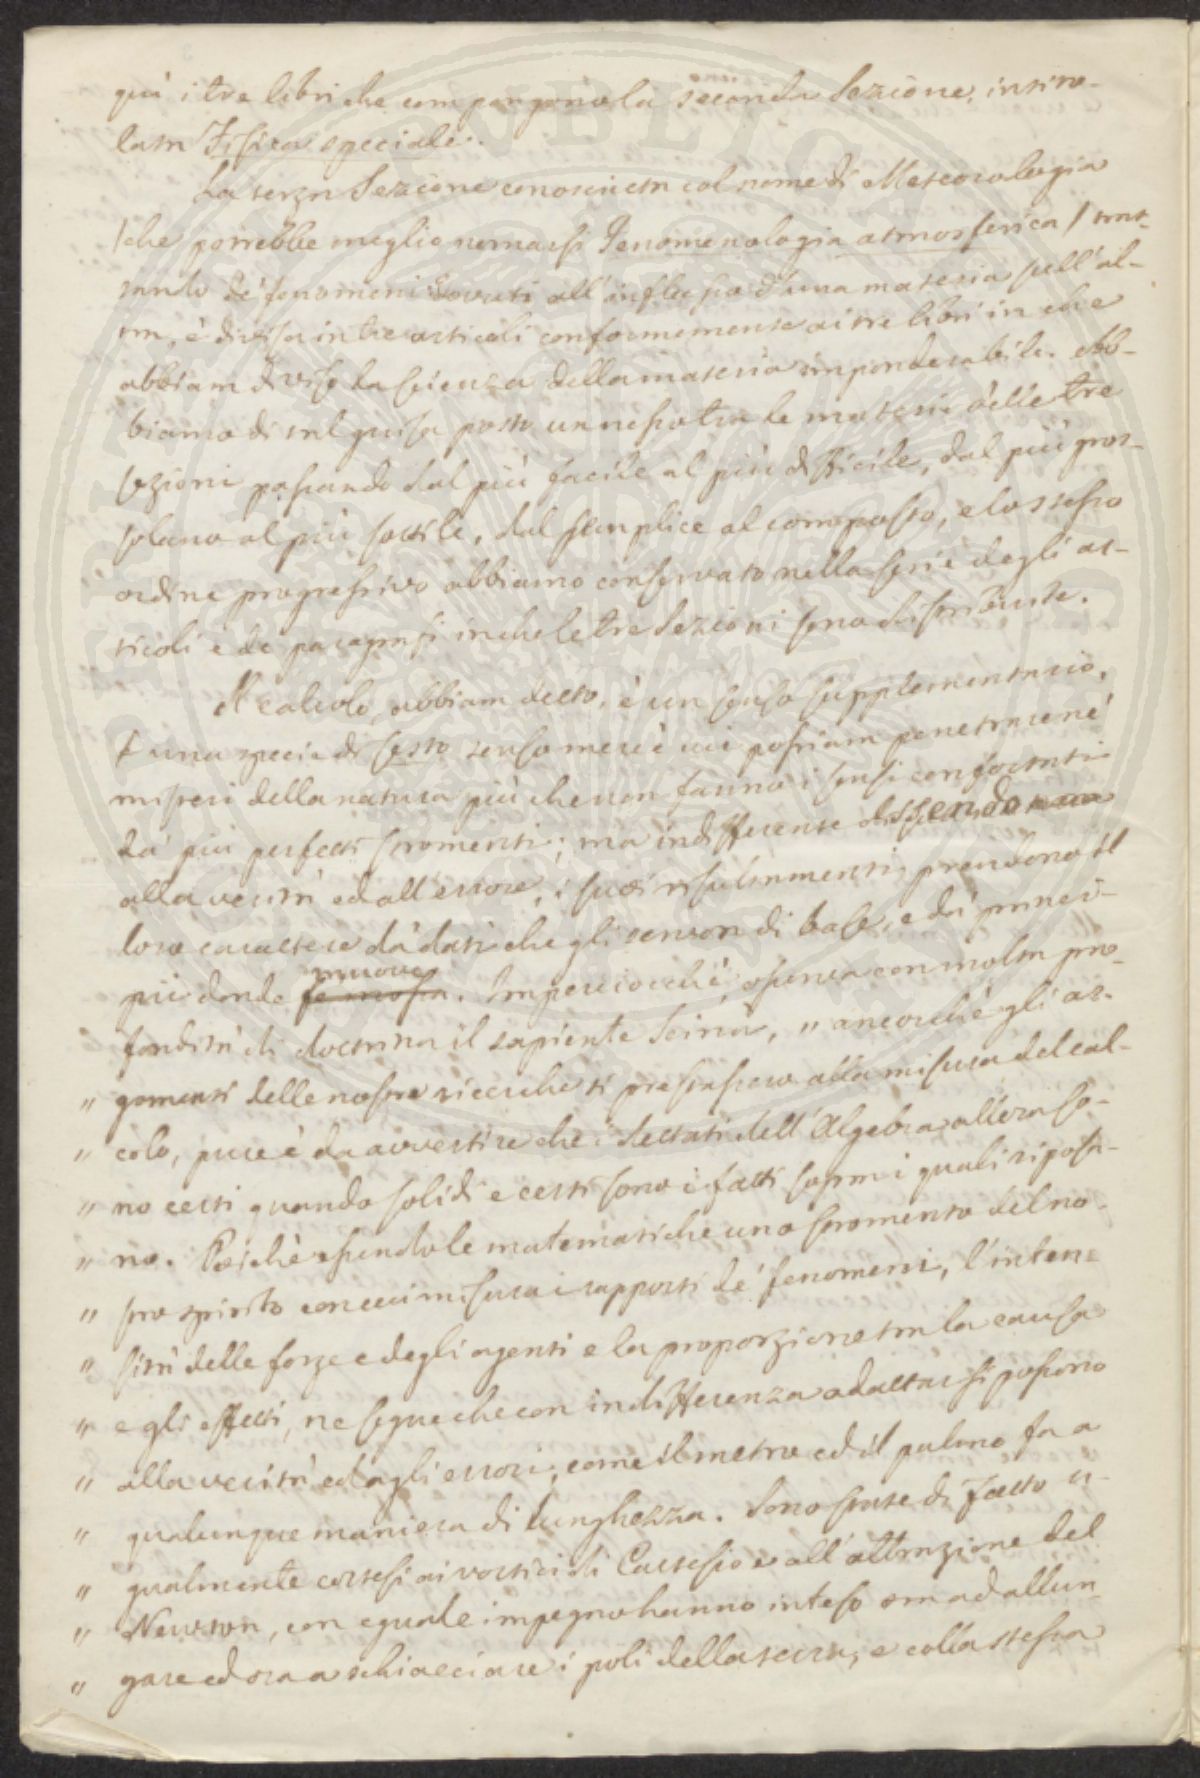 quì i tre libri che compongono la seconda Sezione, intito-
lata Fisica speciale.
La terza Sezione conosciuta col nome di Meteorologia
(che potrebbe meglio nomarsi Fenomenologia atmosferica) trat-
tando de' fenomeni dovuti all'influsso d'una materia sull'al-
tra, è divisa in tre articoli conformemente ai tre libri in che
abbiam diviso la scienza della materia imponderabile. Ab-
biamo di tal guisa posto un nesso tra le materie delle tre
sezioni passando dal più facile al più difficile, dal più gros-
solano al più sottile, dal semplice al composto, e lo stesso
ordine progressivo abbiamo conservato nella serie degli ar-
ticoli e de paragrafi in che le tre Sezioni sono distribuite.
Il calcolo, abbiam detto, è un senso supplementario,
è una specie di sesto senso mercè cui possiam penetrare né
misteri della natura più che non fanno i sensi confortati
da' più perfetti stromenti; ma indifferente essendo
alla verità ed all'errore, i suoi risultamenti prendono il
loro carattere da' dati che gli servon di base, e da' princi-
pii donde se mossa muove. Imperciocchè, osserva con molta pro-
fondità di dottrina il sapiente Scinà, " ancorchè gli ar-
" gomenti delle nostre ricerche si prestassero alla misura del cal-
" colo, pure è da avvertire che i dettati dell'Algebra allora so-
" no certi quando solidi e certi sono i fatti sopra i quali riposa-
" no. Poichè essendo le matematiche uno stromento del no-
" stro spirito con cui misura i rapporti de' fenomeni, l'inten-
" sità delle forze e degli agenti e la proporzione tra la causa
" e gli effetti, ne segue che con indifferenza adattar si possono
" alla verità ed agli errori, come il metro ed il palmo fa a
" qualunque maniera di lunghezza. Sono state di fatto u-
" gualmente cortesi ai vortici di Cartesio e all'attrazione del
" Newton, con eguale impegno hanno inteso ora ad allun-
" gare ed ora a schiacciare i poli della terra; e colla stessa